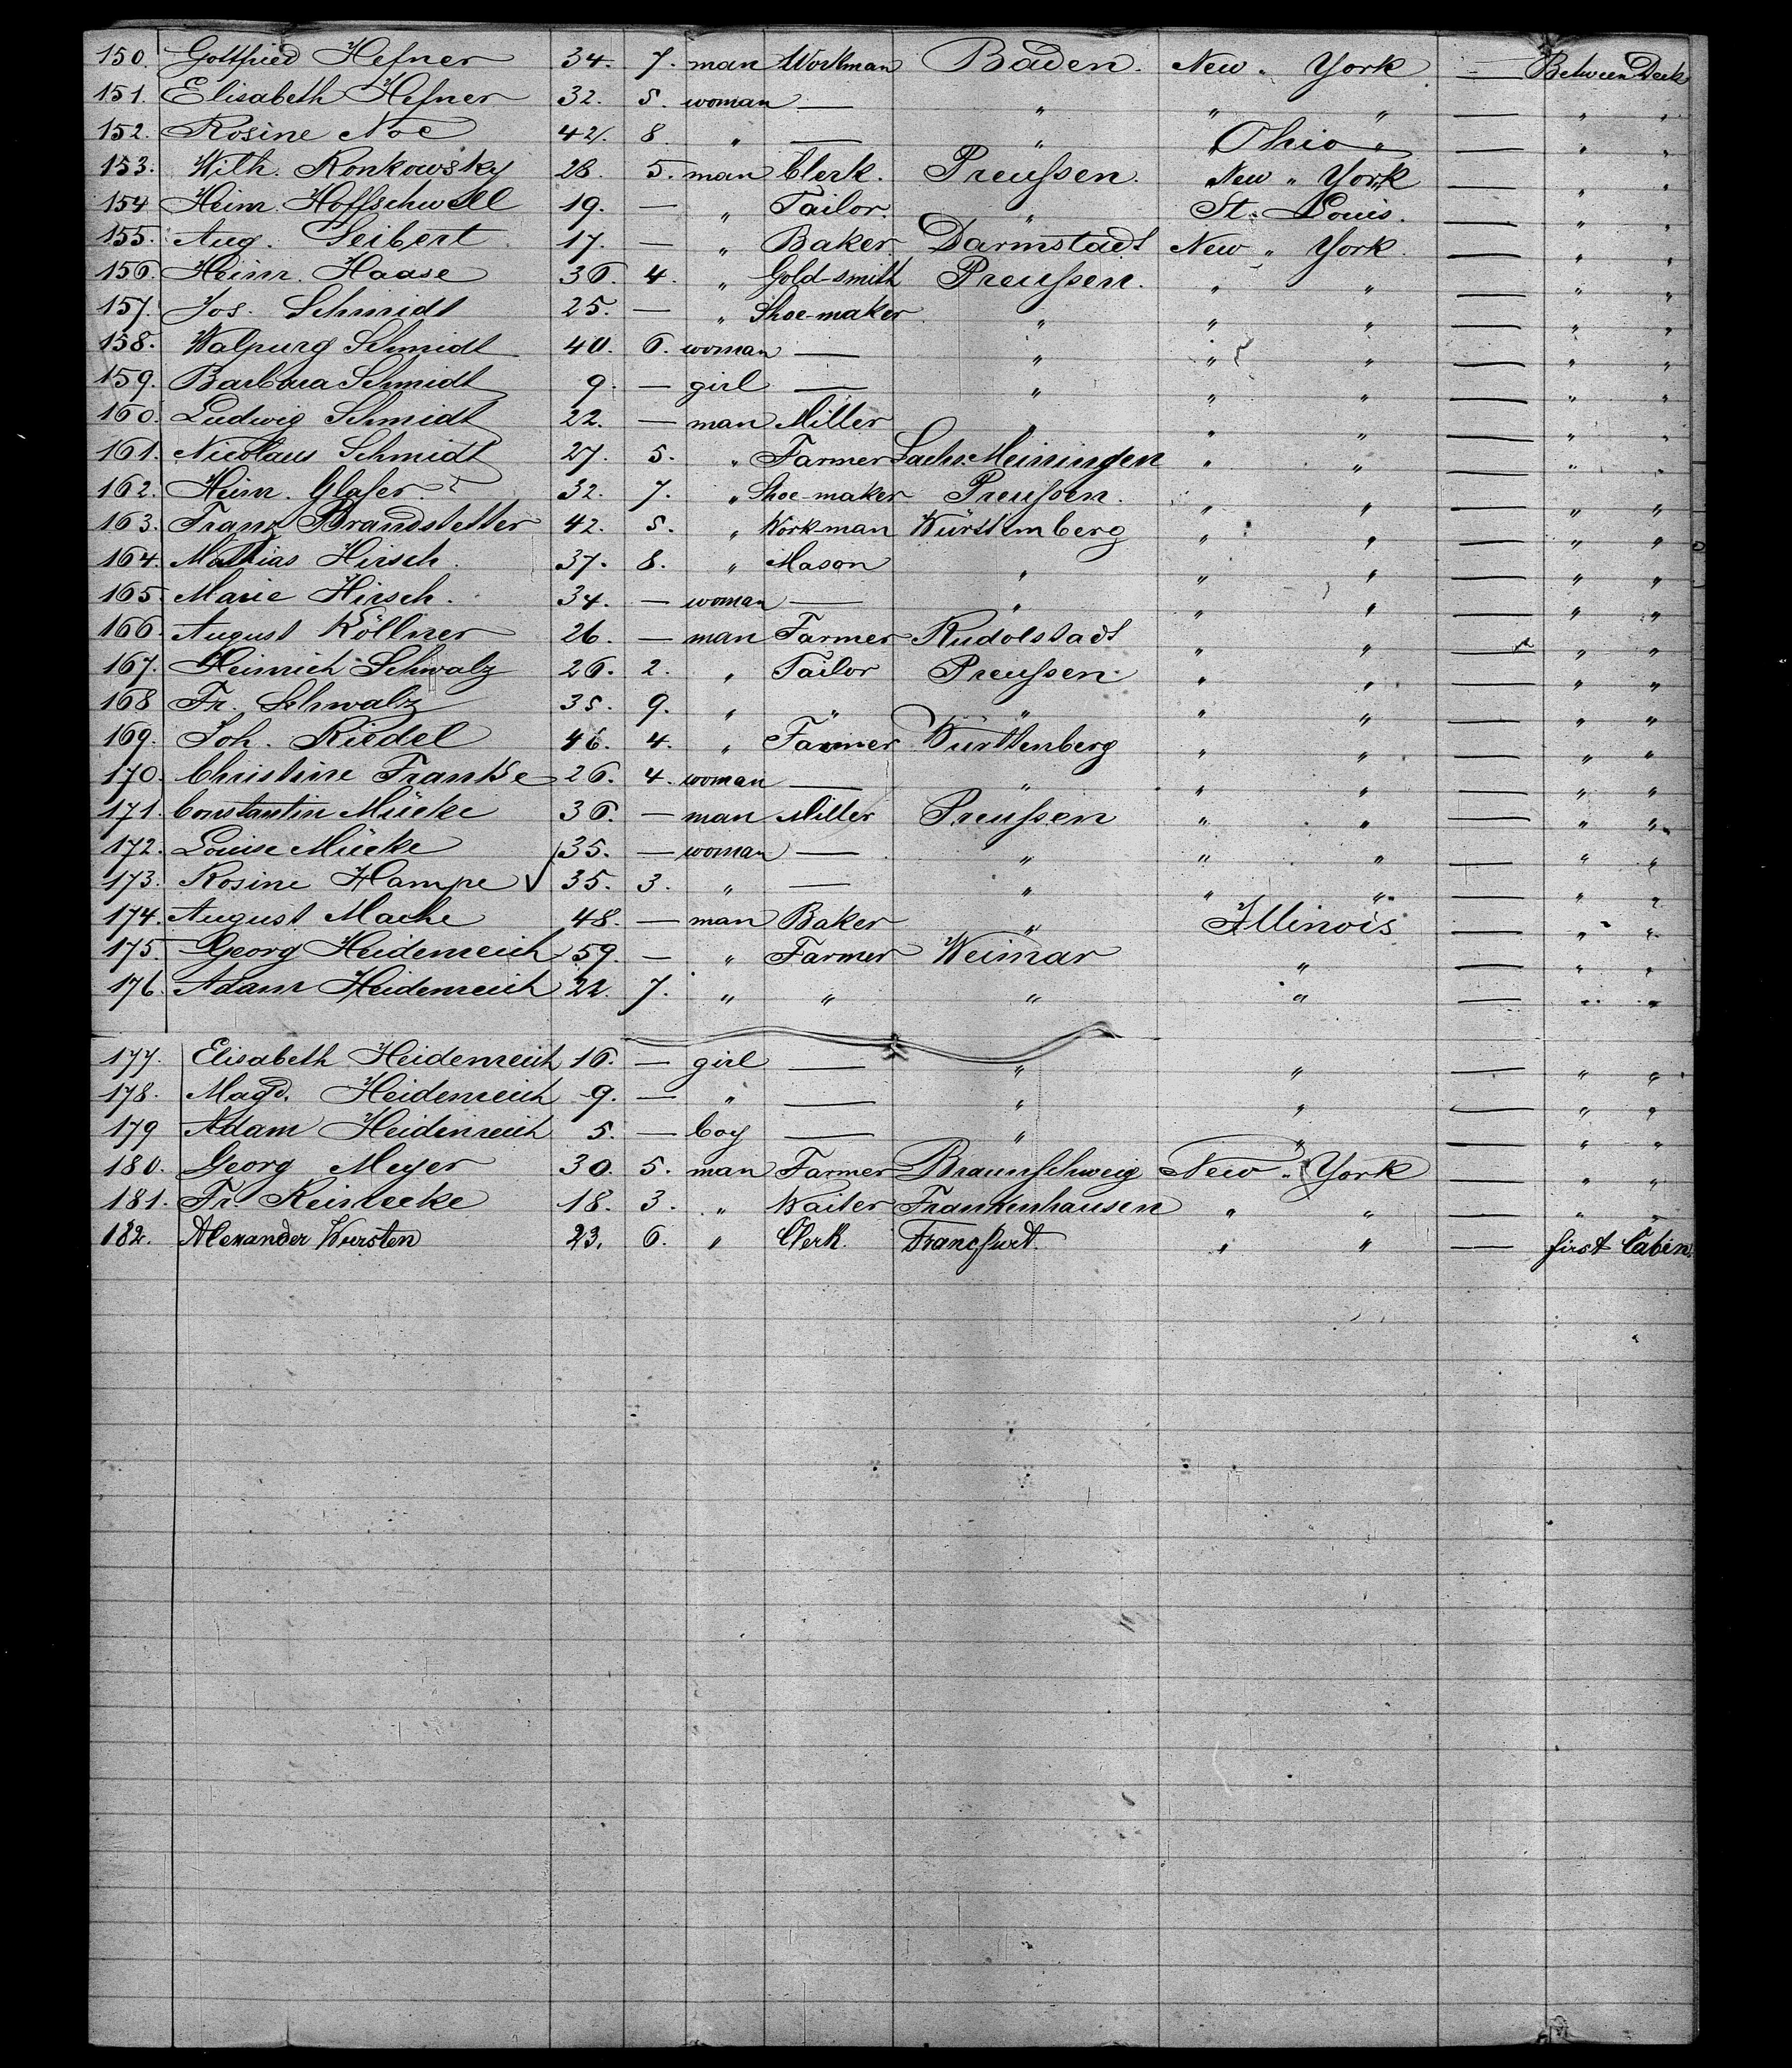 150. Gottfried Hefner 34. 7. man Workman Baden. New " York — Between Deck
151. Elisabeth Hefner 32. 5. woman — " " " — " "
152. Rosine Noe 42. 8. " — " Ohio " — " "
153. Wilh. Konkowsky 28. 5. man Clerk. Preußen. New " York — " "
154 Heinr. Hoffschwell 19. — " Tailor. " St. Louis. — " "
155. Aug. Seibert 17. — " Baker Darmstadt New " York. — " "
156. Heinr. Haase 36. 4. " Gold-smith Preußen. " " — " "
157. Jos. Schmidt 25. — " Shoe-maker " " " — " "
158. Walpurg Schmidt 40. 6. woman — " " " — " "
159. Barbara Schmidt 9. — girl — " " " — " "
160. Ludwig Schmidt 22. — man Miller " " " — " "
161. Nicolaus Schmidt 27. 5. " Farmer Sachs. Meiningen " " — " "
162. Heinr. Glaser. 32. 7. " Shoe-maker Preußen. " " — " "
163. Franz Brandstetter 42. 5. " Work-man Württemberg " " — " "
164. Mathias Hirsch. 37. 8. " Mason " " " — " "
165 Marie Hirsch. 34. — woman — " " " — " "
166. August Köllner 26. — man Farmer Rudolstadt " " — " "
167. Heinrich Schwalz 26. 2. " Tailor Preußen. " " — " "
168 Fr. Schwalz 35. 9. " " " " " — " "
169. Joh. Riedel 46. 4. " Farmer Württenberg " " — " "
170. Christine Frantze 26. 4. woman — " " " — " "
171. Constantin Mücke 36. — man Miller Preußen " " — " "
172. Louise Mücke 35. — woman — " " " — " "
173. Rosine Hampe ✓ 35. 3. " — " " " — " "
174. August Mache 48. — man Baker " Illinois — " "
175. Georg Heidenreich 59. — " Farmer Weimar " — " "
176. Adam Heidenreich 22. 7. " " " " — " "
177. Elisabeth Heidenreich 16. — girl — " " — " "
178. Magd. Heidenreich 9. — " — " " — " "
179 Adam Heidenreich 5. — boy — " " — " "
180. Georg Meyer 30. 5. man Farmer Braunschweig New " York — " "
181. Fr. Reinecke 18. 3. " Waiter Frankenhausen " " — " "
182. Alexander Wursten 23. 6. " Clerk. Francfurt. " " — first Cabin.